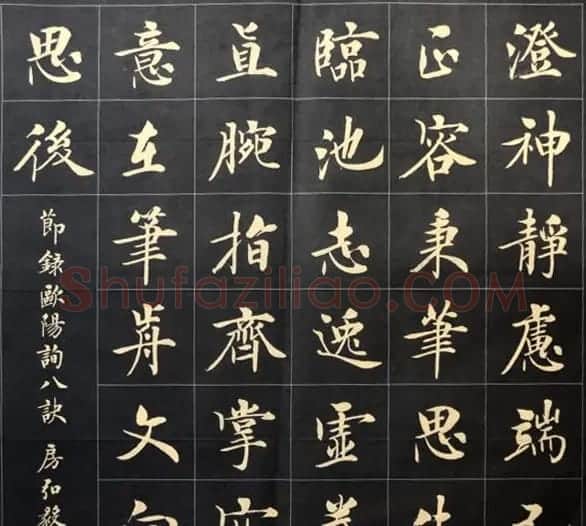 澄神靜慮端己
正容秉筆思生
臨池志逸虛拳
直腕指齊掌空
意在筆歬文向
思後
節錄歐陽詢八訣 房弘毅
Shufaziliao.COM